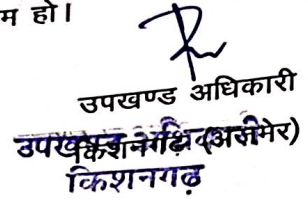 म हो।
उपखण्ड अधिकारी
किशनगढ़ (अजमेर)
उपखण्ड अधिकारी
किशनगढ़